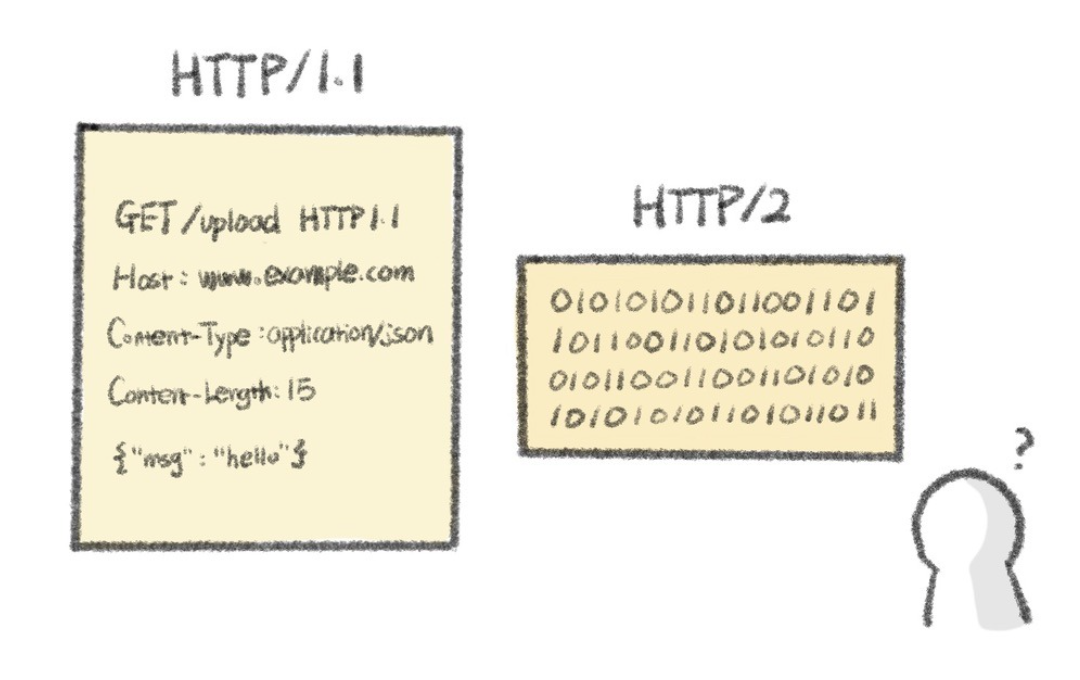 HTTP/1.1
GET /upload HTTP1.1
Host: www.example.com
Content-Type: application/json
Content-Length: 15
{"msg": "hello"}
HTTP/2
010101011011001101
101100110101010110
010110011001101010
101010101101011011
?